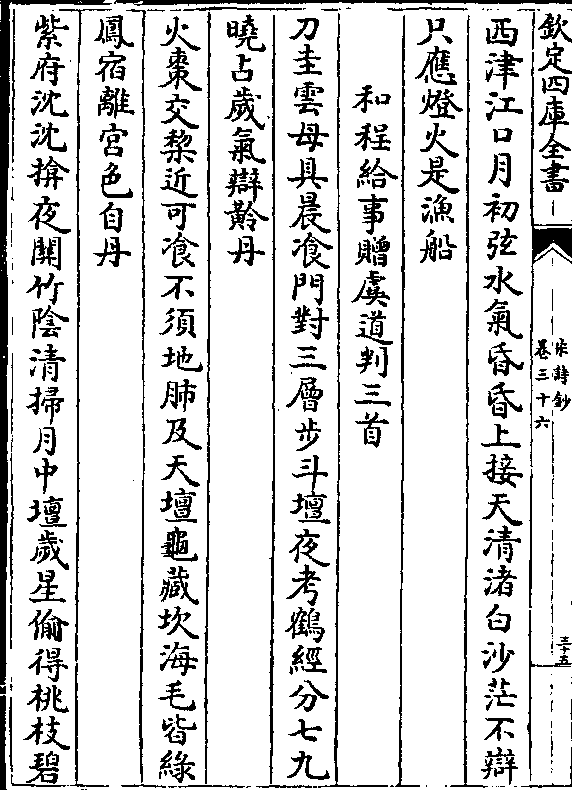 欽定四庫全書
宋詩鈔
卷三十六
三十五
西津江口月初弦水氣昏昏上接天清渚白沙茫不辯
只應燈火是漁船
和程給事贈虞道判三首
刀圭雲母具晨飡門對三層步斗壇夜考鶴經分七九
曉占歲氣辯黅丹
火棗交棃近可飡不須地肺及天壇龜藏坎海毛皆綠
鳳宿離宮色自丹
紫府沈沈揜夜關竹陰清掃月中壇歲星偷得桃枝碧